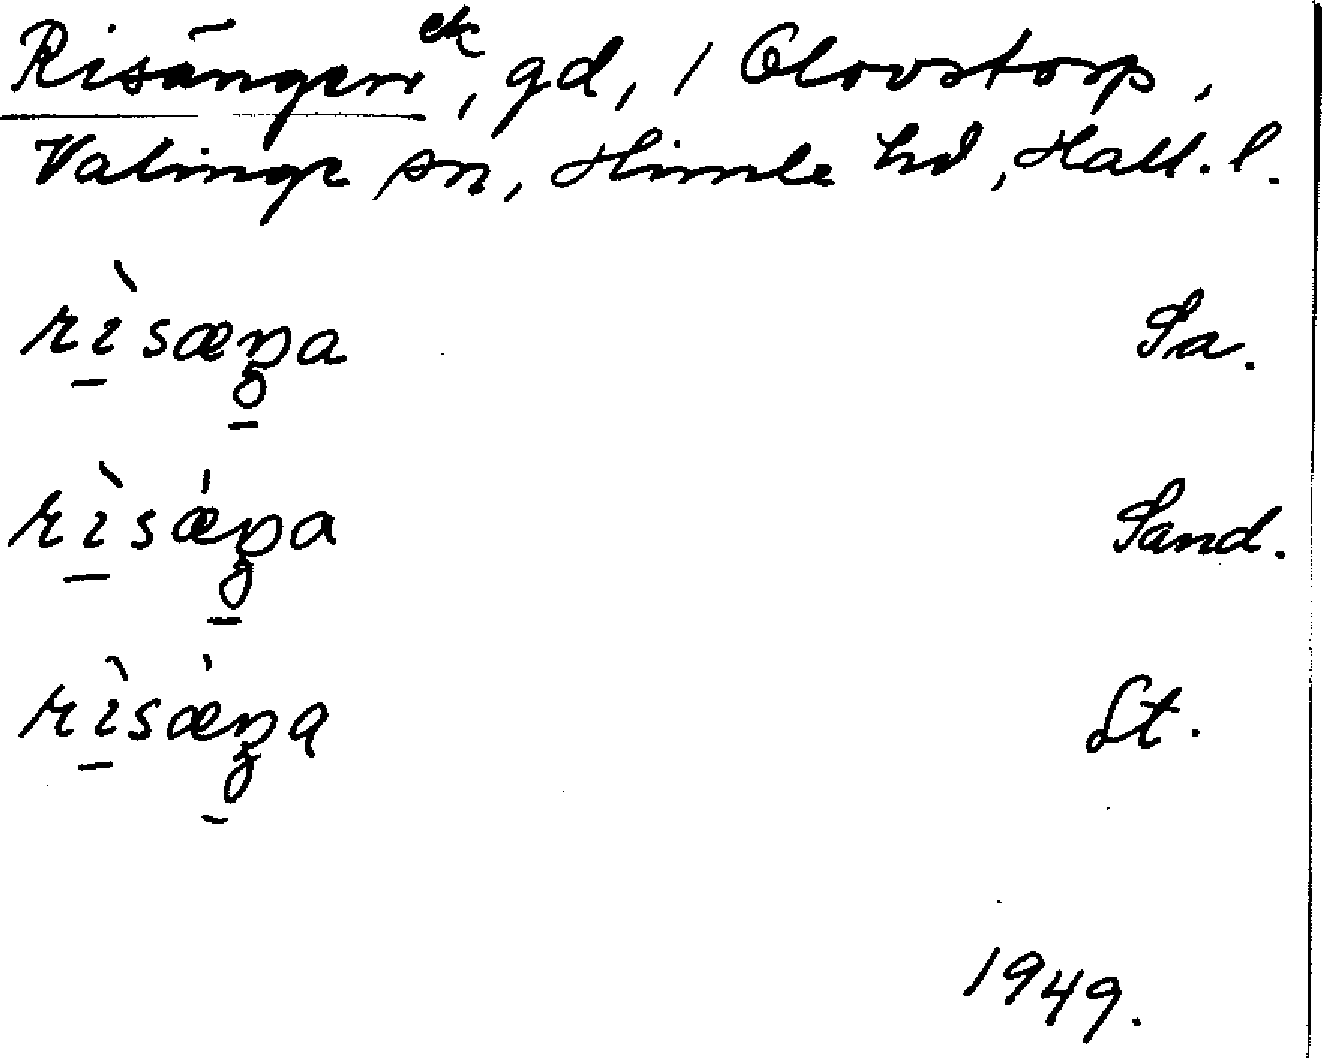 Risängen ek, gd, 1 Olovstorp,
Valinge sn, Himle hd, Hall. l.
rìsæŋa Sa.
rìsǽŋa Sand.
rìsǽŋa St.
1949.